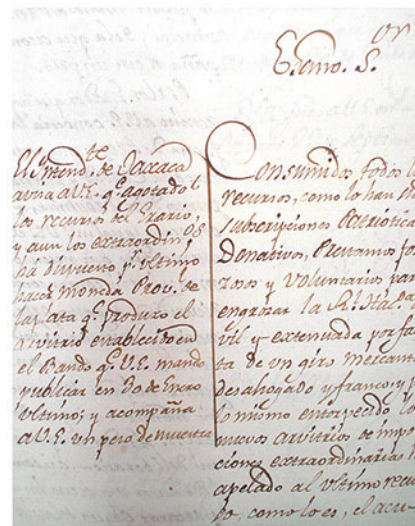 Exmo. S.
El Yntend.te de Oaxaca
avisa a V.E. q.e agotados
los recursos del Erario,
y aun los extraordin.os
ha dispuesto p.r ultimo
hacer moneda Prov.l de
la plata q.e produxo el
arvitrio establecido en
el Bando q.e V.E. mandó
publicar en 30 de Enero
ultimo; y acompaña
a V.E. un peso de muestra
Consumidos todos l
recursos, como lo han si
subscripciones Patriotica
Donativos, Prestamos for
zosos y voluntarios par
engrosar la Rl. Hac.da
vil y extenuada por fa
ta de un giro mercan
desahogado y franco, y
lo mismo entorpecido l
nuevos arvitrios de impo
ciones extraordinarias h
apelado al ultimo recu
so, como lo es, el acu